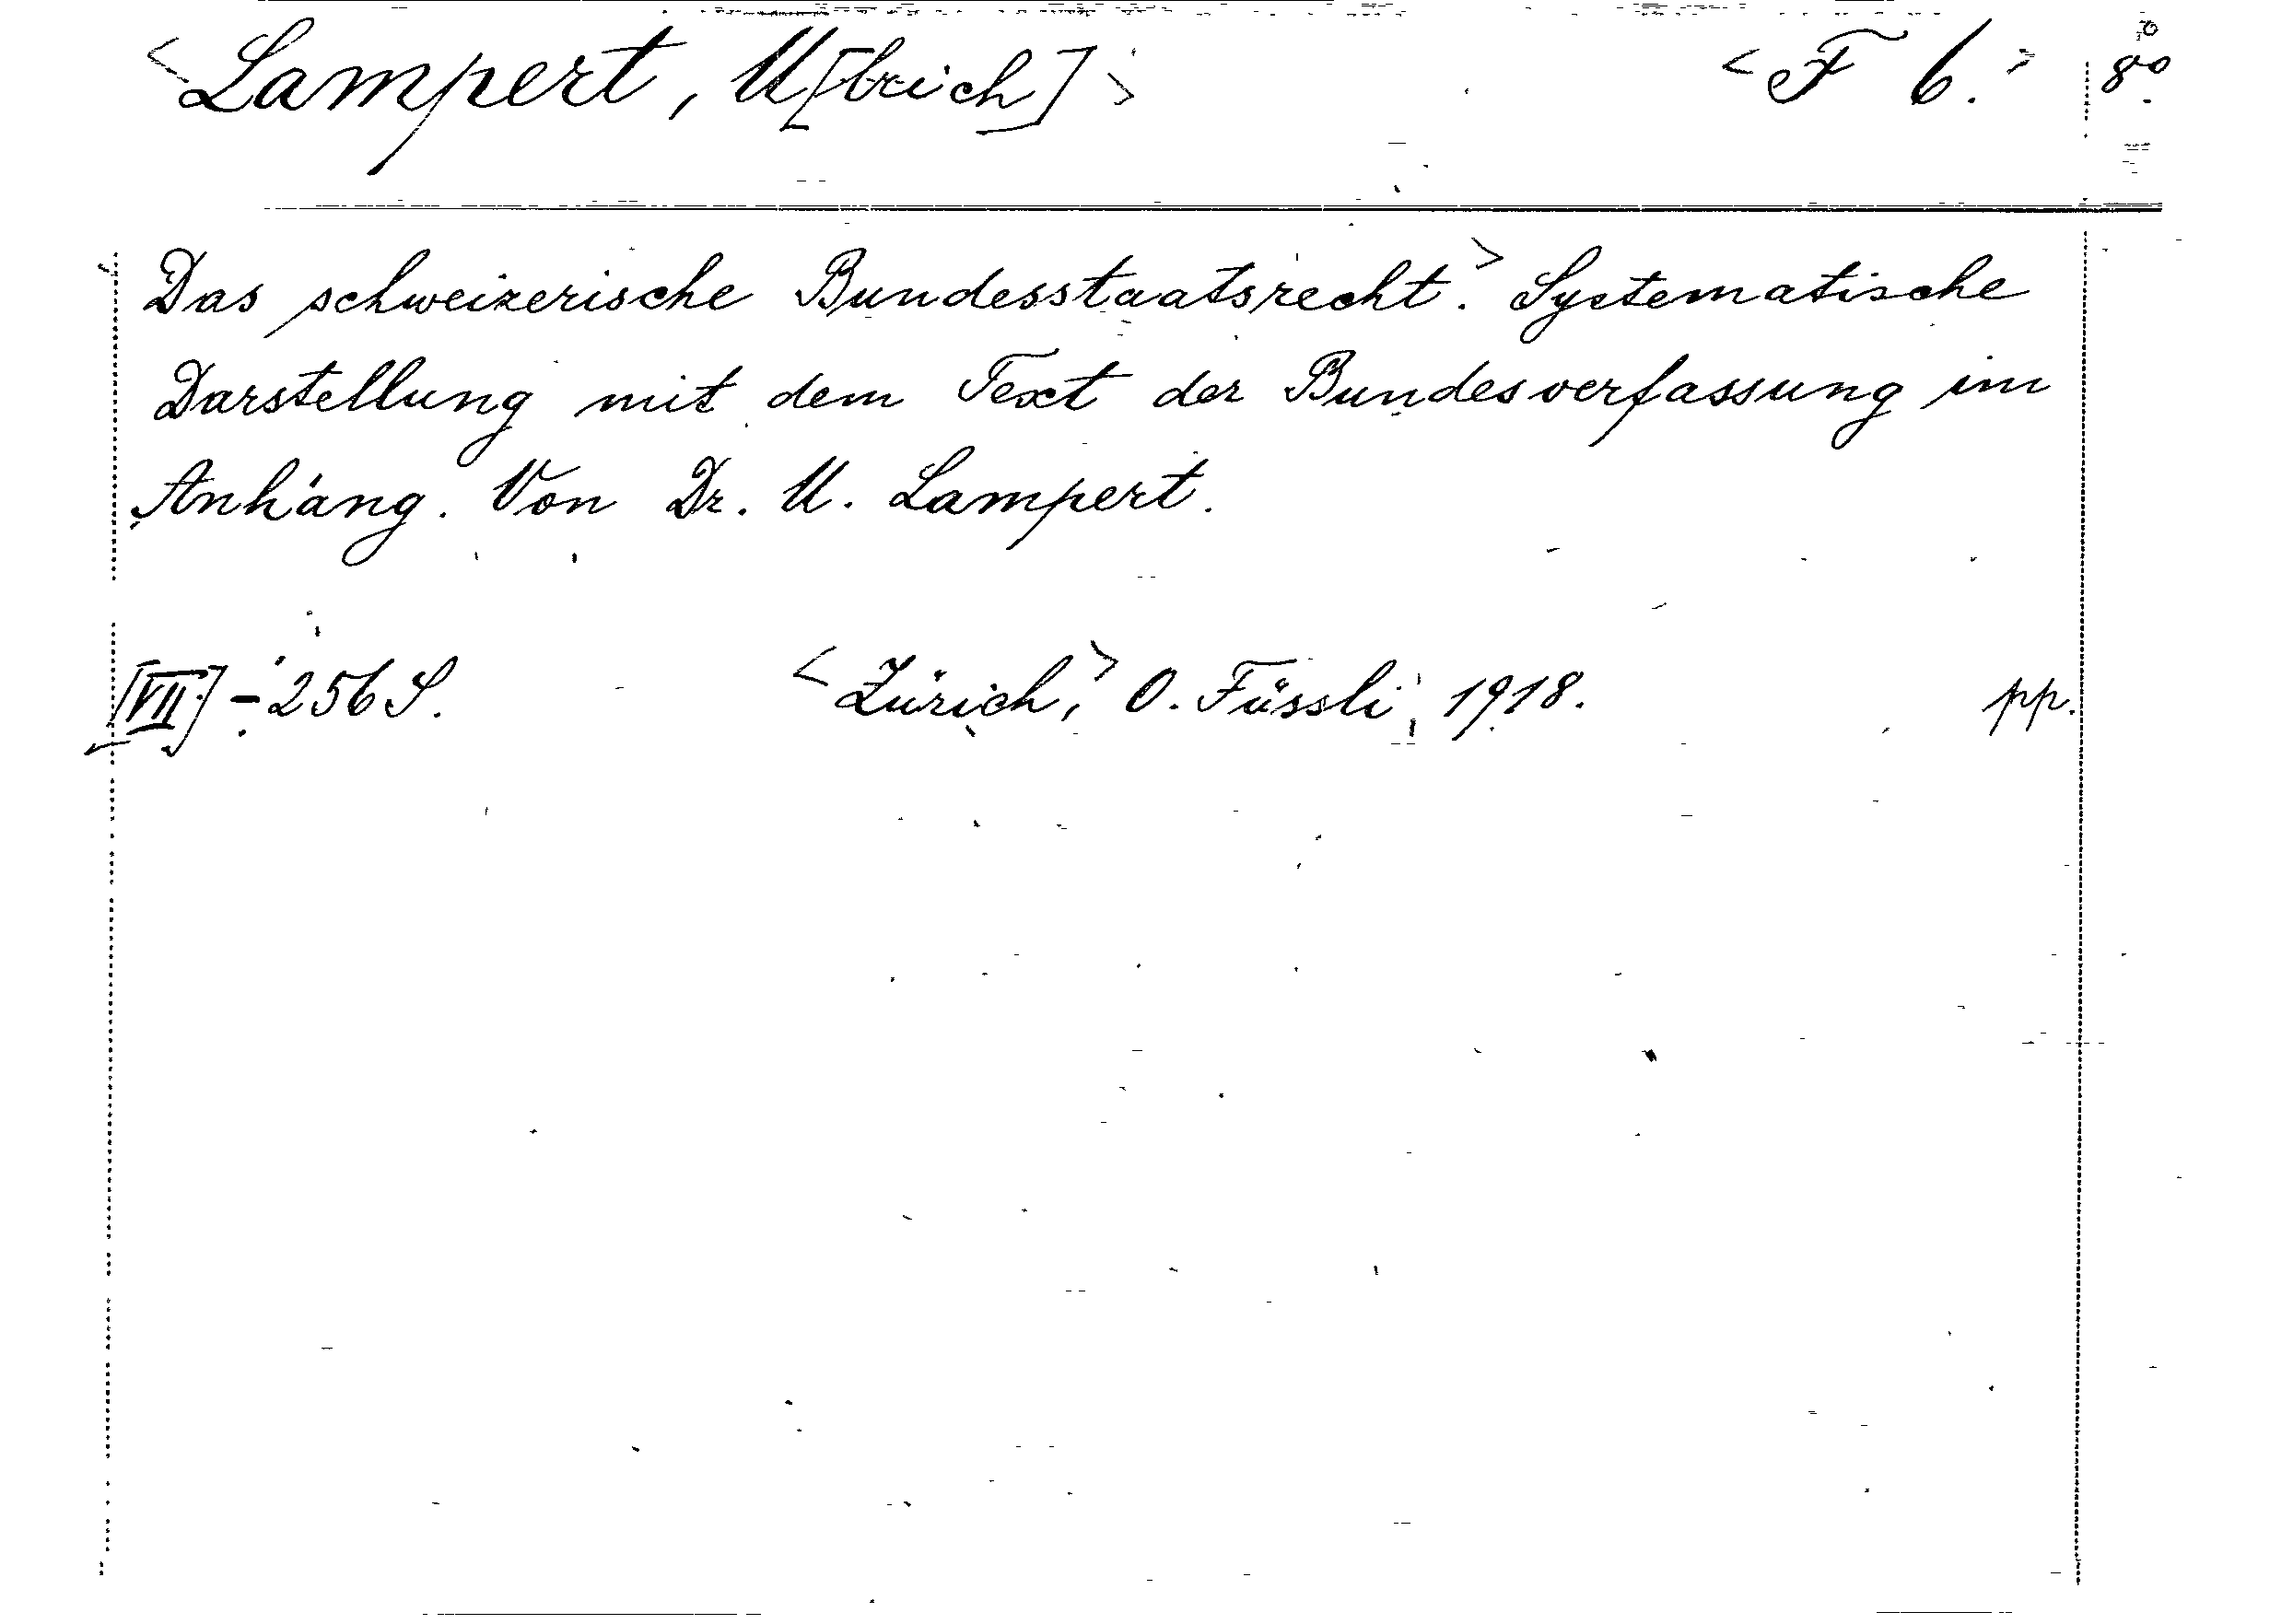 <Lampert, U[lrich]> <F 6.> 8°.
<Das schweizerische Bundesstaatsrecht.> Systematische
Darstellung mit dem Text der Bundesverfassung im
Anhang. Von Dr. U. Lampert.
[VII] - 256 S. <Zürich,> O. Füssli, 1918. pp.